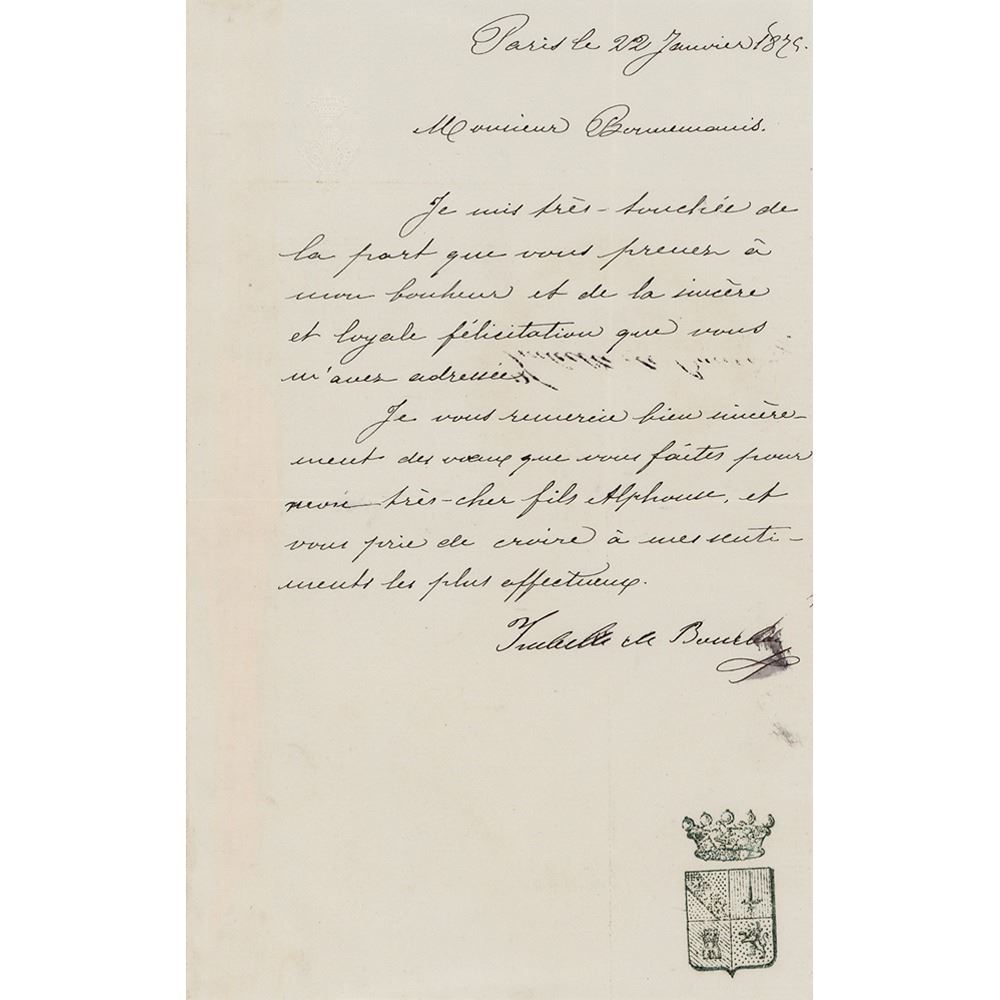 Paris le 22 Janvier 1875.
Monsieur
Je suis très-touchée de
la part que vous prenez à
mon bonheur et de la sincère
et loyale félicitation que vous
m'avez adressée.
Je vous remercie bien sincère-
ment des vœux que vous faites pour
mon très-cher fils Alphonse, et
vous prie de croire à mes senti-
ments les plus affectueux.
Isabelle de Bourbon